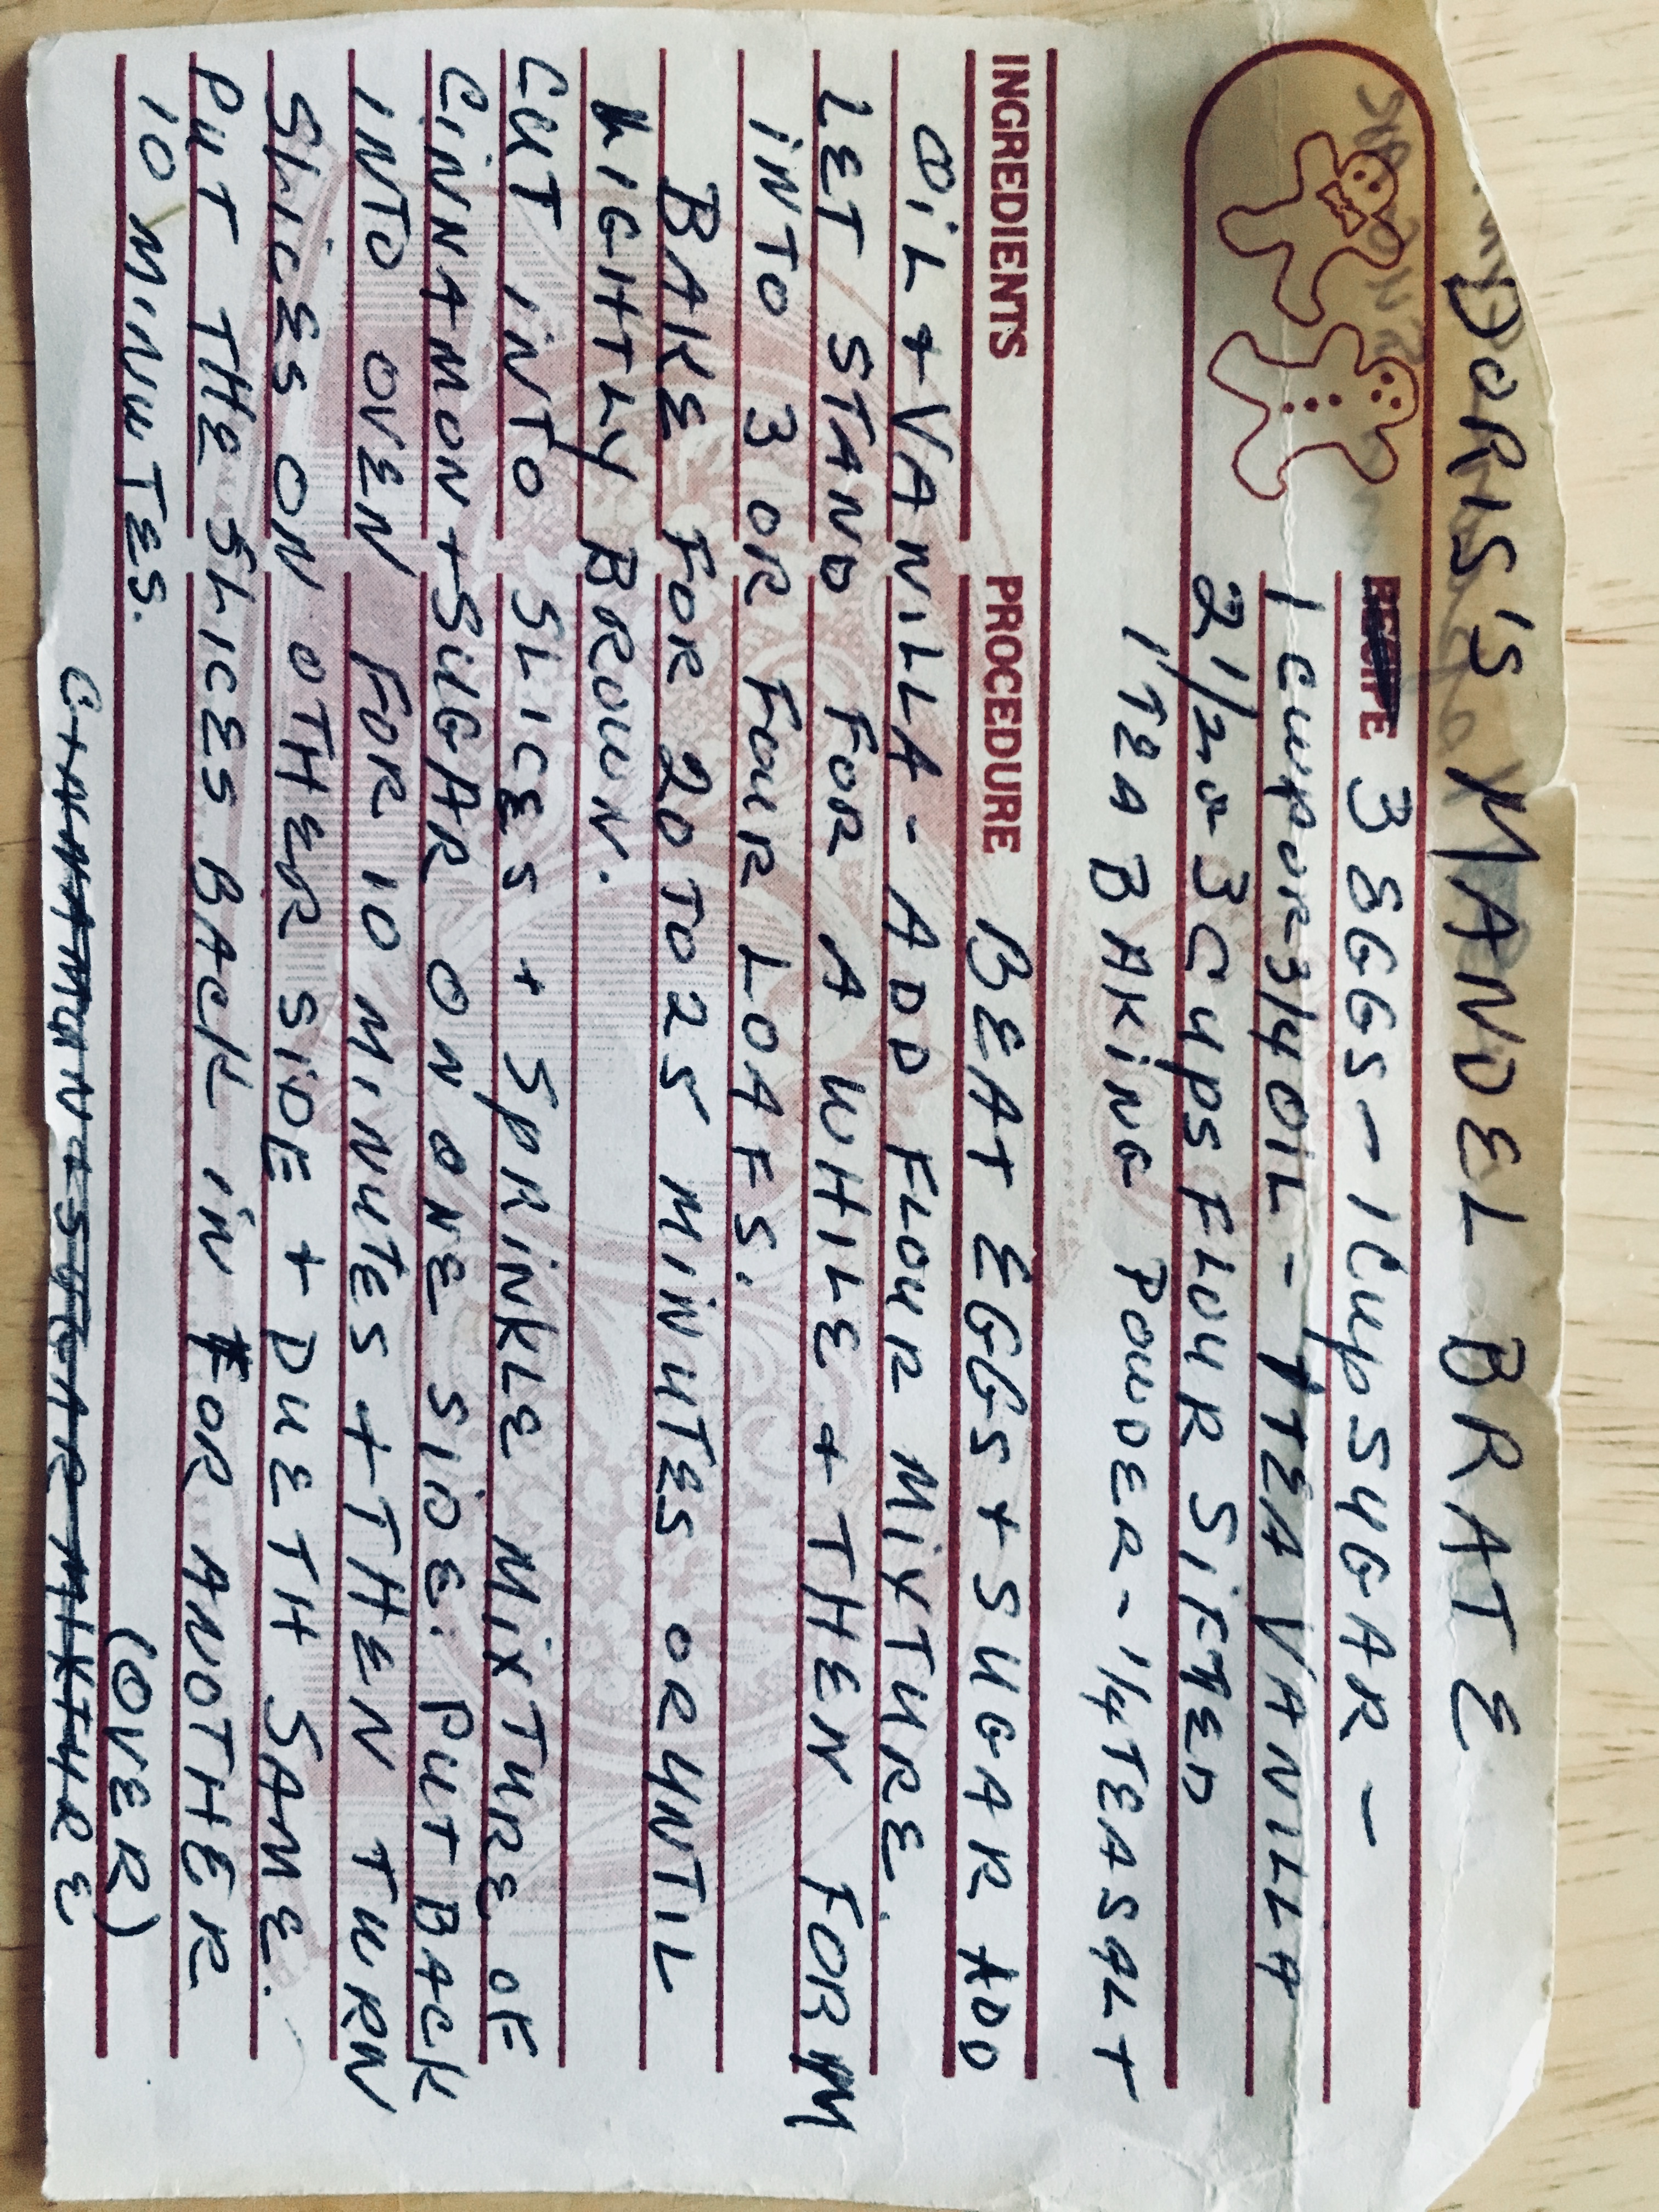 DORIS'S MANDEL BRATE
RECIPE 3 EGGS - 1 CUP SUGAR -
1 CUP OR 3/4 OIL - 1 TEA VANILLA
2 1/2 a 3 CUPS FLOUR SIFTED
1 TEA BAKING POWDER - 1/4 TEA SALT
INGREDIENTS PROCEDURE BEAT EGGS + SUGAR ADD
OIL + VANILLA - ADD FLOUR MIXTURE.
LET STAND FOR A WHILE + THEN FORM
INTO 3 OR FOUR LOAFS.
BAKE FOR 20 TO 25 MINUTES OR UNTIL
LIGHTLY BROWN.
CUT INTO SLICES + SPRINKLE MIXTURE OF
CINNAMON + SUGAR ON ONE SIDE. PUT BACK
INTO OVEN FOR 10 MINUTES + THEN TURN
SLICES ON OTHER SIDE + DUETH SAME.
PUT THE SLICES BACK IN FOR ANOTHER
10 MINUTES. (OVER)
CINNAMON + SUGAR MIXTURE